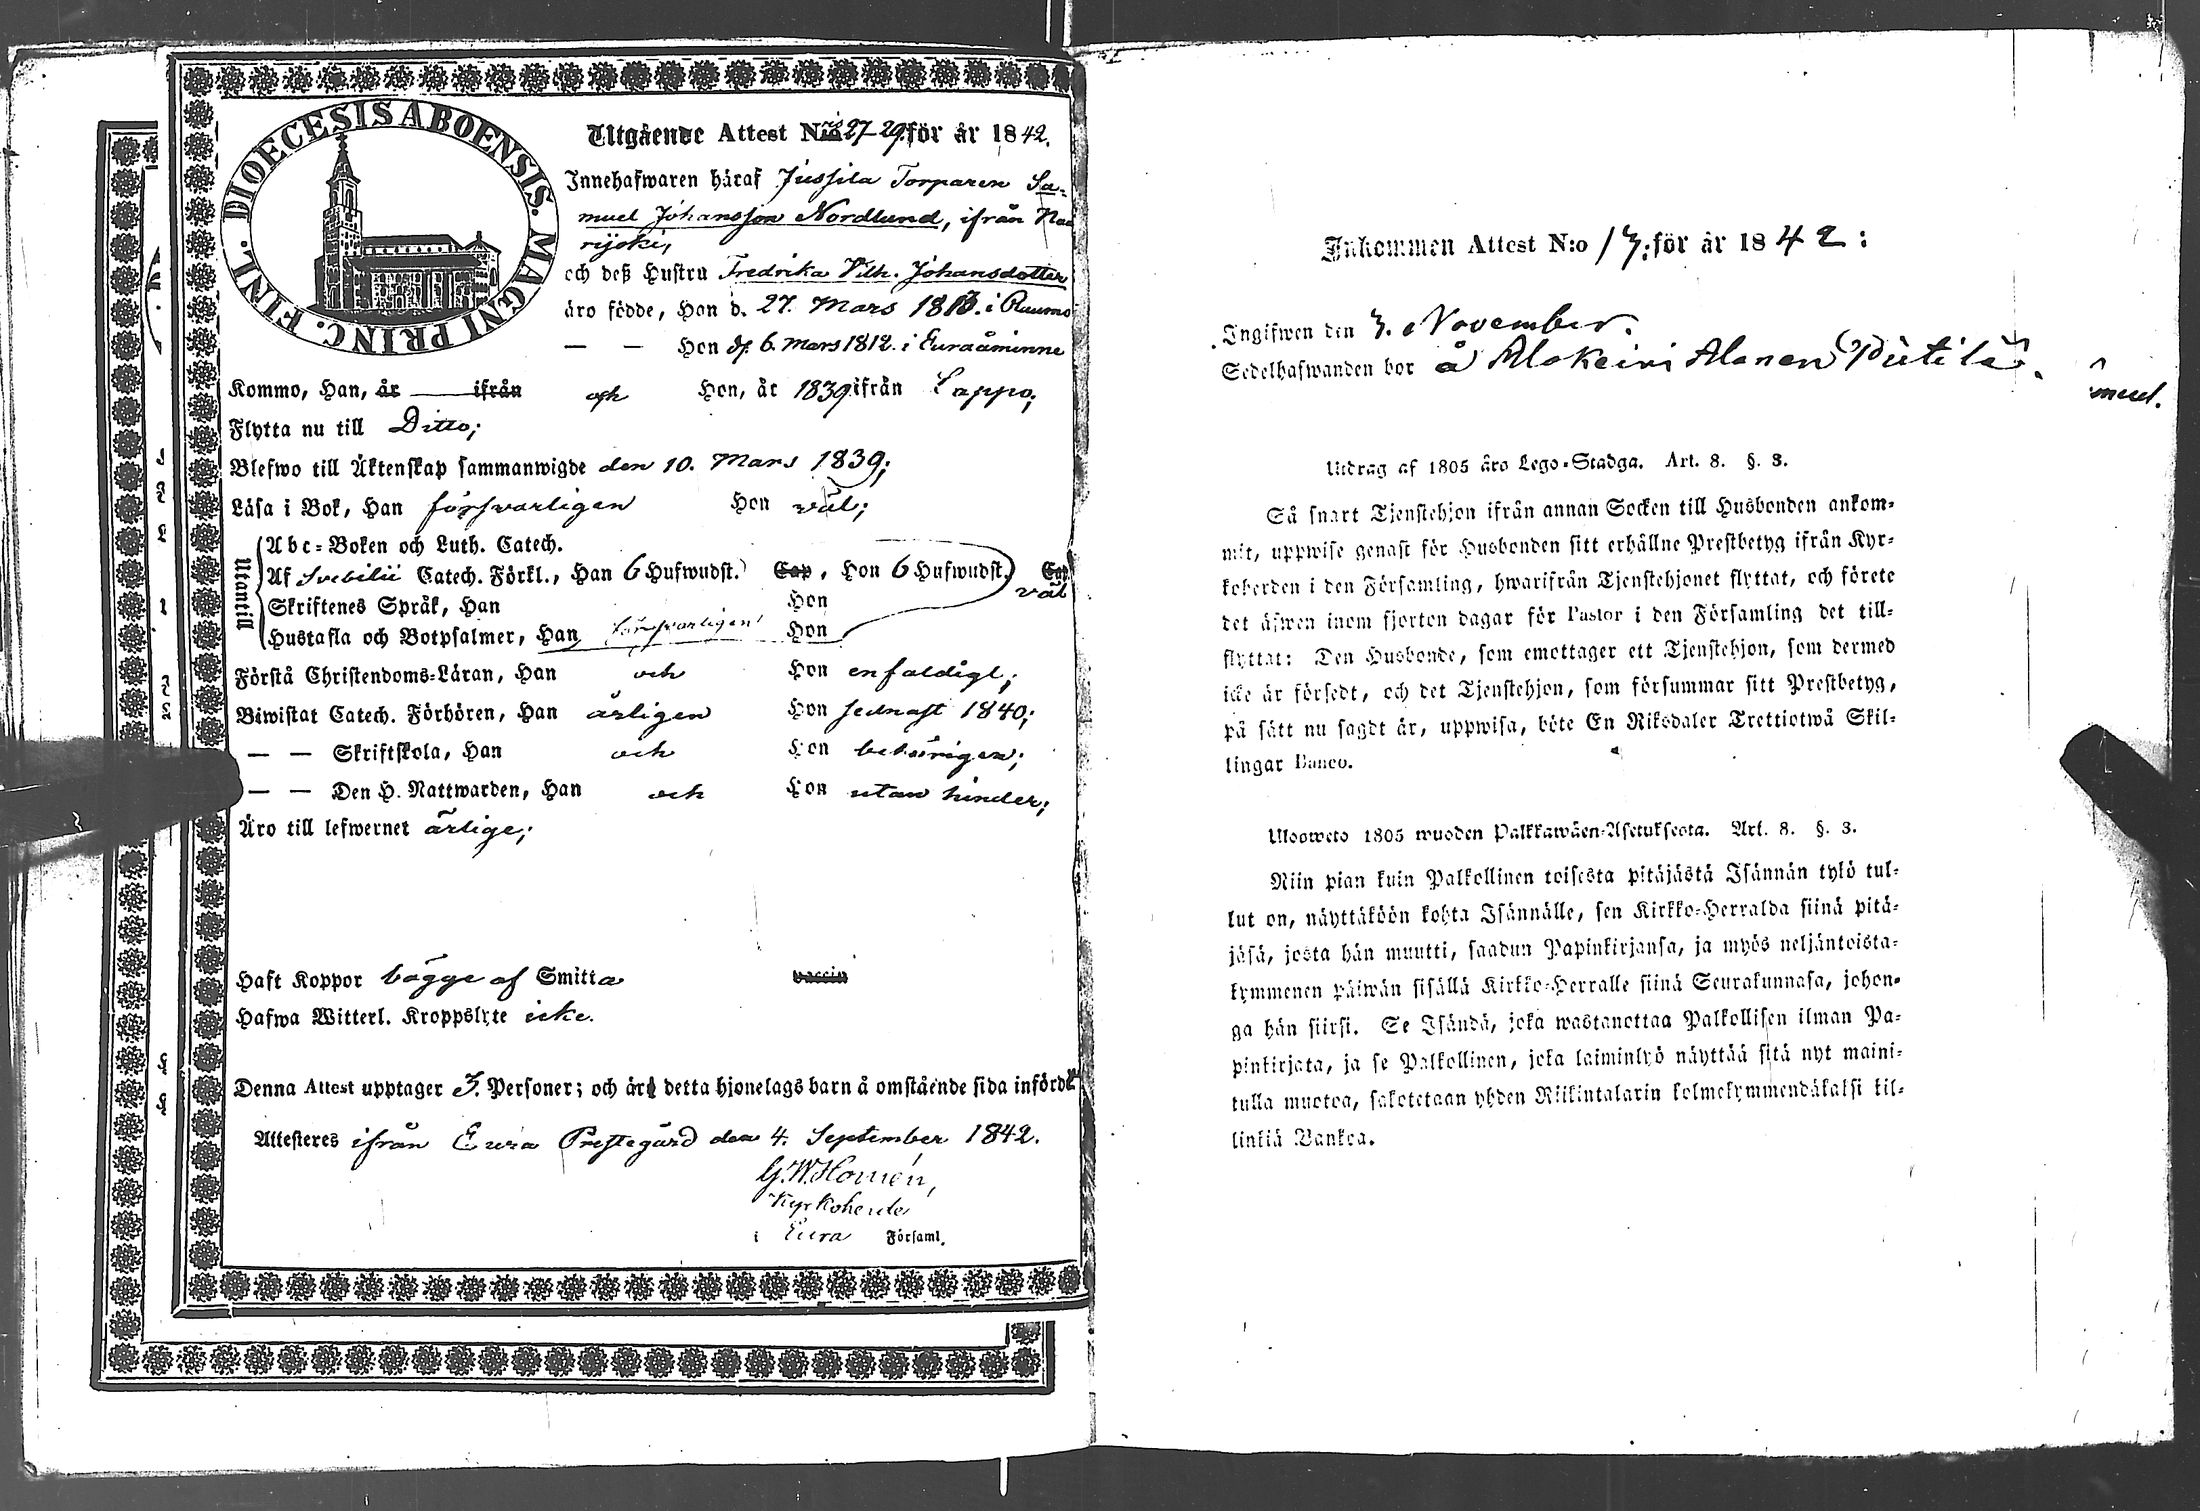 DIOECESIS ABOENSIS. MAGNI PRINC. FINL.
Utgående Attest N:ris 27-29. för år 1842.
Innehafwaren häraf Jussila Torparen Sa-
muel Johansson Nordlund, ifrån
rijoki,
och deß Hustru Fredrika Vilh. Johansdotter
äro födde, Han d. 27. Mars 1813. i Raumo
— — Hon d. 6. Mars 1812. i Euraåminne
Kommo, Han, år ifrån och Hon, år 1839 ifrån Lappo;
Flytta nu till Ditto;
Blefwo till Äktenskap sammanwigde den 10. Mars 1839;
Läsa i Bok, Han försvarligen Hon väl;
Utantill
Abc-Boken och Luth. Catech.
Af Svebilii Catech. Förkl., Han 6 Hufwudst. Cap, Hon 6 Hufwudst. Cap
väl
Skriftenes Språk, Han Hon
Hustafla och Botpsalmer, Han försvarligen Hon
Förstå Christendoms-Läran, Han och Hon enfaldigt;
Biwistat Catech. Förhören, Han årligen Hon sednast 1840;
— — Skriftskola, Han och Hon behörigen;
— — Den H. Nattwarden, Han och Hon utan hinder;
Äro till lefwernet ärlige;
Haft Koppor bägge af Smitta vaccin
Hafwa Witterl. Kroppslyte icke.
Denna Attest upptager 3. Personer; och äro detta hjonelags barn å omstående sida införde
Attesteres ifrån Eura Prestegård den 4. September 1842.
G. W. Homén,
Kyrkoherde
i Eura Församl.
Inkommen Attest N:o 13: för år 1842:
Ingifwen den 3. November.
Sedelhafwanden bor å Alakeini Alanen Piitilä.
muel.
Utdrag af 1805 års Lego-Stadga. Art. 8. §. 3.
Så snart Tjenstehjon ifrån annan Socken till Husbonden ankom-
mit, uppwise genast för Husbonden sitt erhållne Prestbetyg ifrån Kyr-
koherden i den Församling, hwarifrån Tjenstehjonet flyttat, och förete
det äfwen inom fjorton dagar för Pastor i den Församling det till-
flyttat: Den Husbonde, som emottager ett Tjenstehjon, som dermed
icke är försedt, och det Tjenstehjon, som försummar sitt Prestbetyg,
på sätt nu sagdt är, uppwisa, böte En Riksdaler Trettiotwå Skil-
lingar Banco.
Ulosweto 1805 wuoden Palkkawäen-Asetuksesta. Art. 8. §. 3.
Niin pian kuin Palkollinen toisesta pitäjästä Isännän tylö tul-
lut on, näyttäköön kohta Isännälle, sen Kirkko-Herralda siinä pitä-
jäsä, josta hän muutti, saadun Papinkirjansa, ja myös neljäntoista-
kymmenen päiwän sisällä Kirkko-Herralle siinä Seurakunnasa, johon-
ga hän siirsi. Se Isändä, joka wastanottaa Palkollisen ilman Pa-
pinkirjata, ja se Palkollinen, joka laiminlyö näyttää sitä nyt maini-
tulla muotoa, saketetaan yhden Riikintalarin kolmekymmendäkaksi kil-
linkiä Bankoa.